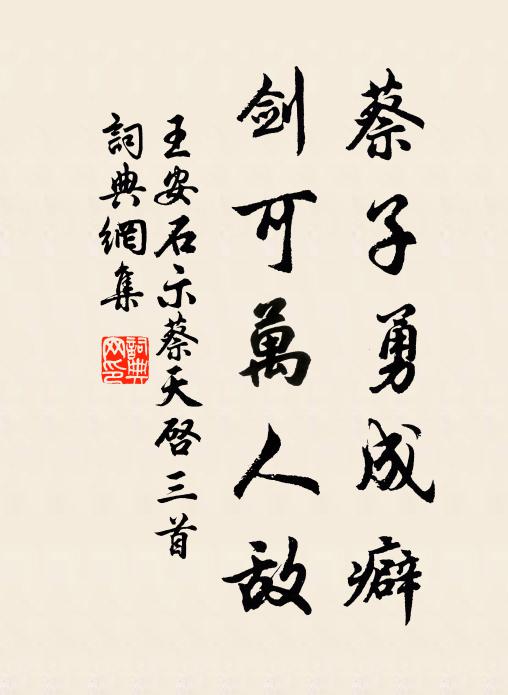 蔡子勇成癖
剑可萬人敌
王安石示蔡天啓三首
詞典網集
詞典網印